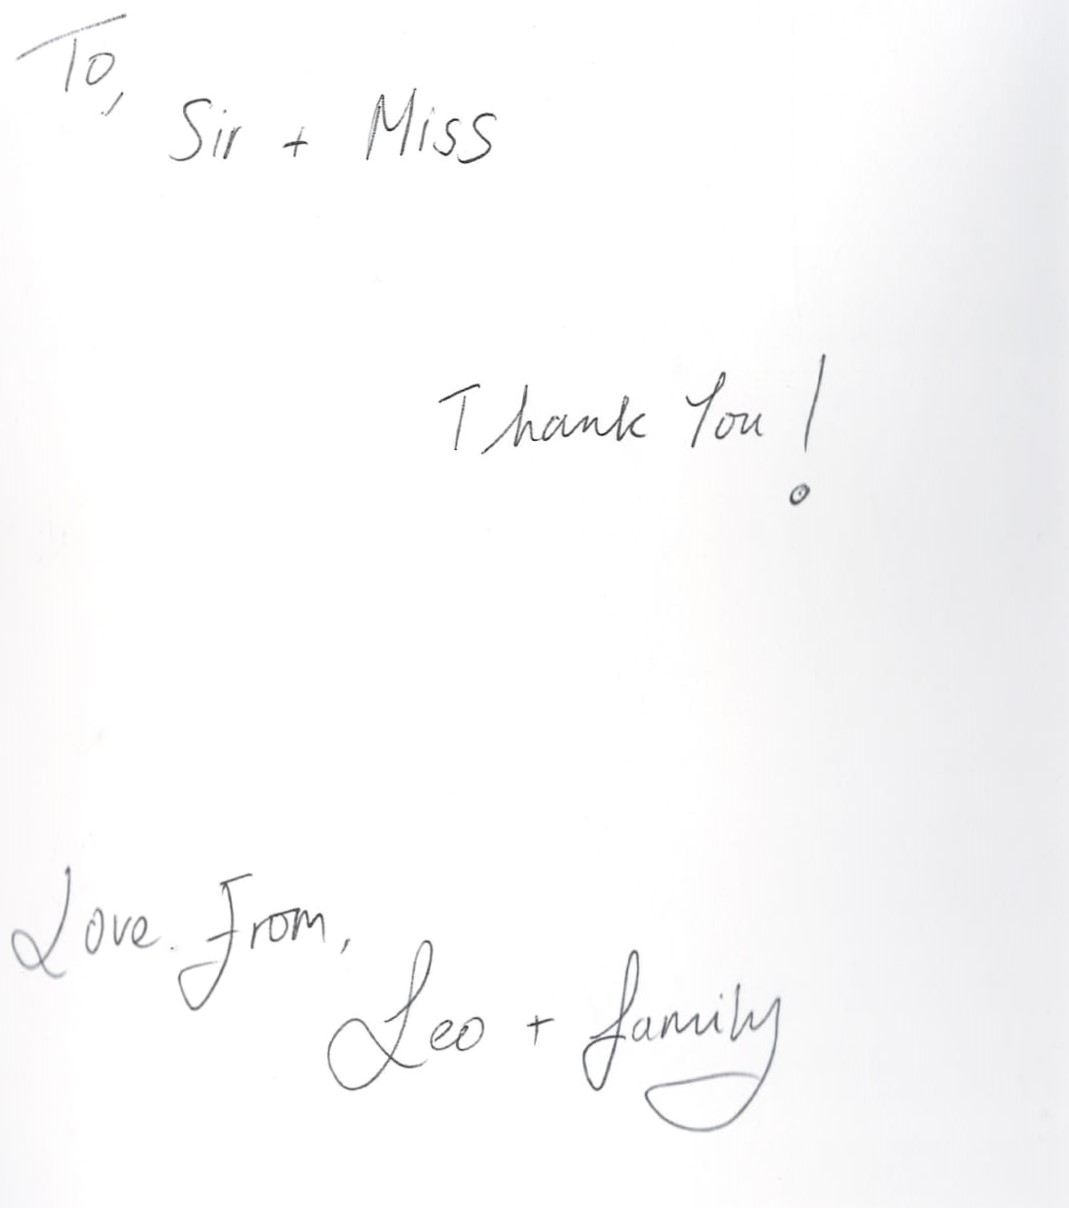 To,
Sir + Miss
Thank You!
Love From,
Leo + family